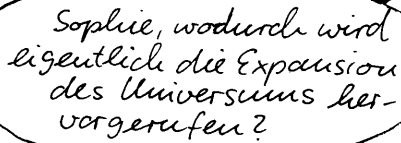 Sophie, wodurch wird
eigentlich die Expansion
des Universums her-
vorgerufen?